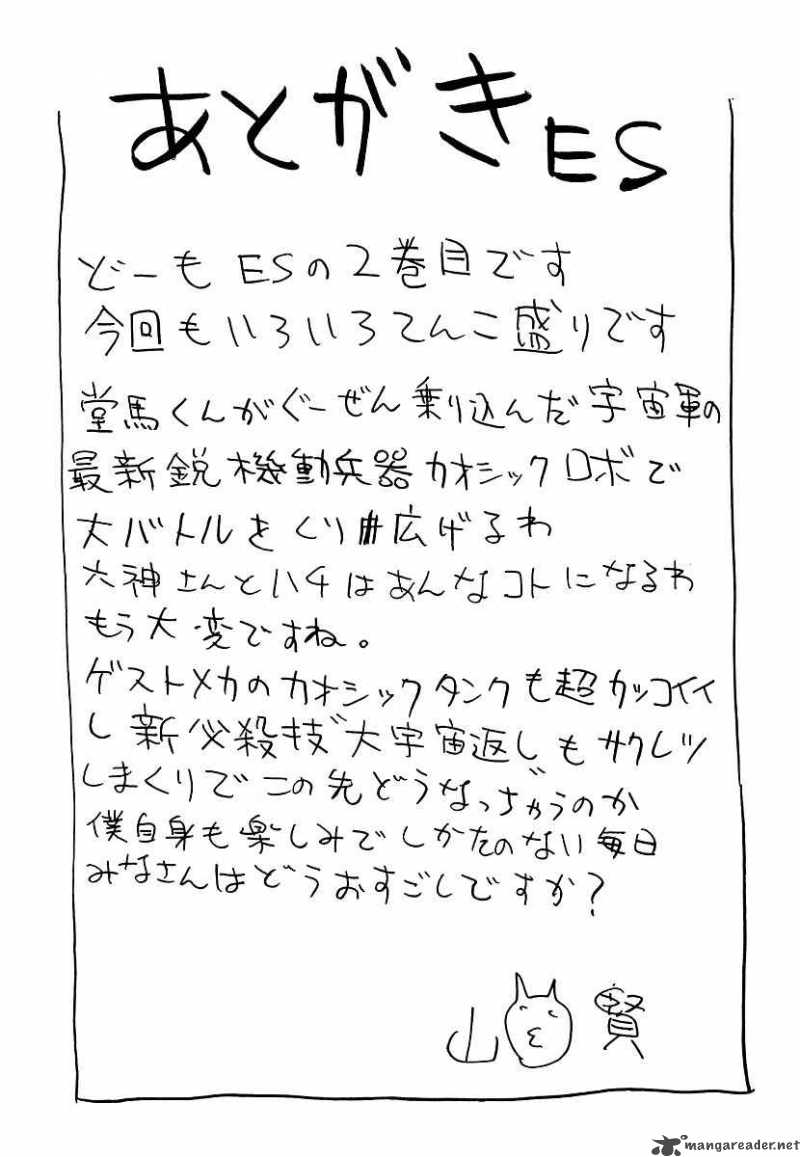 あとがきES
どーも ESの2巻目です
今回もいろいろてんこ盛りです
堂馬くんがぐーぜん乗り込んだ宇宙軍の
最新鋭機動兵器カオシックロボで
大バトルをくり広げるわ
六神さんとハチはあんなコトになるわ
もう大変ですね。
ゲストメカのカオシックタンクも超カッコイイ
し新必殺技"大宇宙返し"もサクレツ
しまくりでこの先どうなっぢゃうのか
僕自身も楽しみでしかたのない毎日
みなさんはどうおすごしですか?
山 賢
mangareader.net